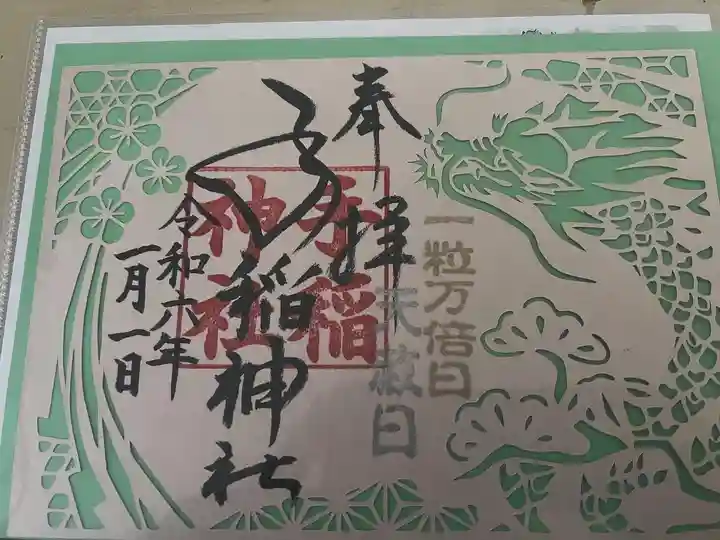 奉拝
一粒万倍日
天赦日
手稲神社
手稲
神社
令和六年
一月一日